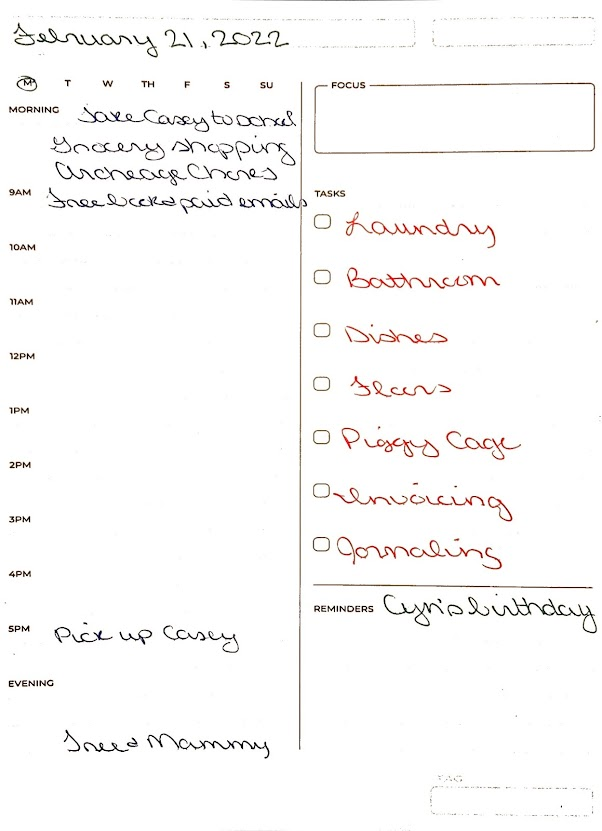 February 21, 2022
M T W TH F S SU
MORNING
Take Casey to school
Grocery shopping
Archeage Chores
9AM Free book & paid emails
10AM
11AM
12PM
1PM
2PM
3PM
4PM
5PM Pick up Casey
EVENING
& Mammy
FOCUS
TASKS
Laundry
Bathroom
Dishes
Floors
Piggy Cage
Invoicing
Jornaling
REMINDERS Cyn's birthday
TAG